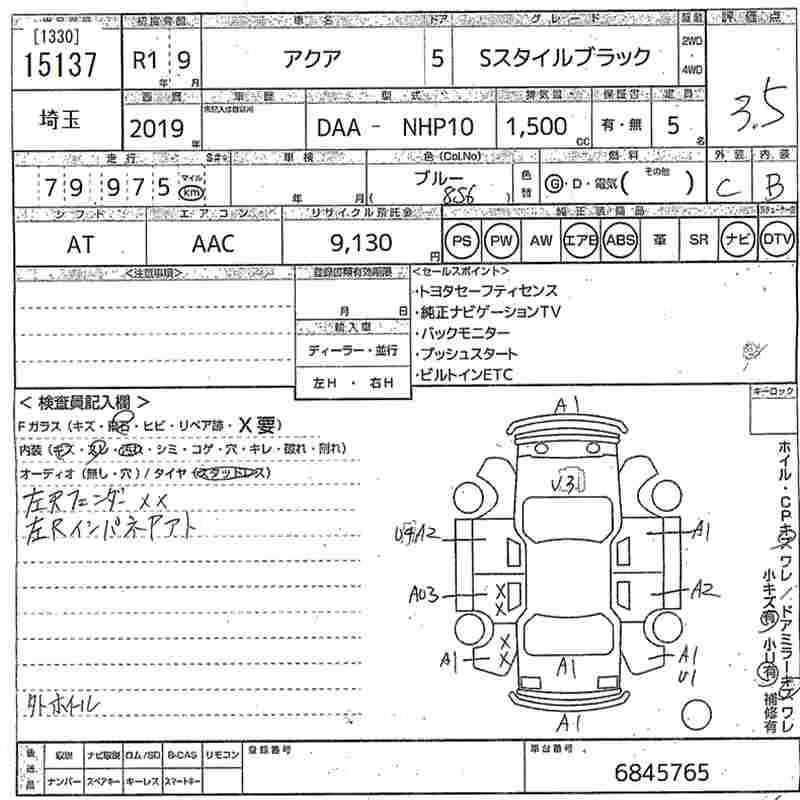 [1330]
15137
初度登録
車名
ドア
グレード
評価点
R1 9
年 月
アクア
5
Sスタイルブラック
2WD
・
4WD
3.5
埼玉
西暦
車歴
型式
排気量
保証書
定員
2019
年
DAA - NHP10
1,500
cc
有・無
5
名
走行
車検
色(Col.No)
燃料
外装
内装
79975
マイル
km
年 月
ブルー
( 856 )
色替
G・D・電気(その他 )
C
B
シフト
エアコン
リサイクル預託金
純正装備品
AT
AAC
9,130
円
PS PW AW エアB ABS 革 SR ナビ DTV
<注意事項>
登録書類有効期限
月 日
輸入車
ディーラー・並行
左H ・ 右H
<セールスポイント>
・トヨタセーフティセンス
・純正ナビゲーションTV
・バックモニター
・プッシュスタート
・ビルトインETC
キーロック
< 検査員記入欄 >
Fガラス (キズ・飛石・ヒビ・リペア跡・X要)
内装 (キズ・汚レ・凹ミ・シミ・コゲ・穴・キレ・破れ・割れ)
オーディオ (無し・穴) / タイヤ (スタッドレス)
左Rフェンダー XX
左Rインパネアアト
外ホイル
A1
U3
A2
A1
AU3
X
X
A2
A1
X
X
A1
A1
U1
A1
ホイル・CPキズワレ/ドアミラーキズワレ
小キズ有 小U有 補修有
後送品
取説 ナビ取説 ロム/SD B-CAS リモコン
ナンバー スペアキー キーレス スマートキー
登録番号
車台番号
6845765